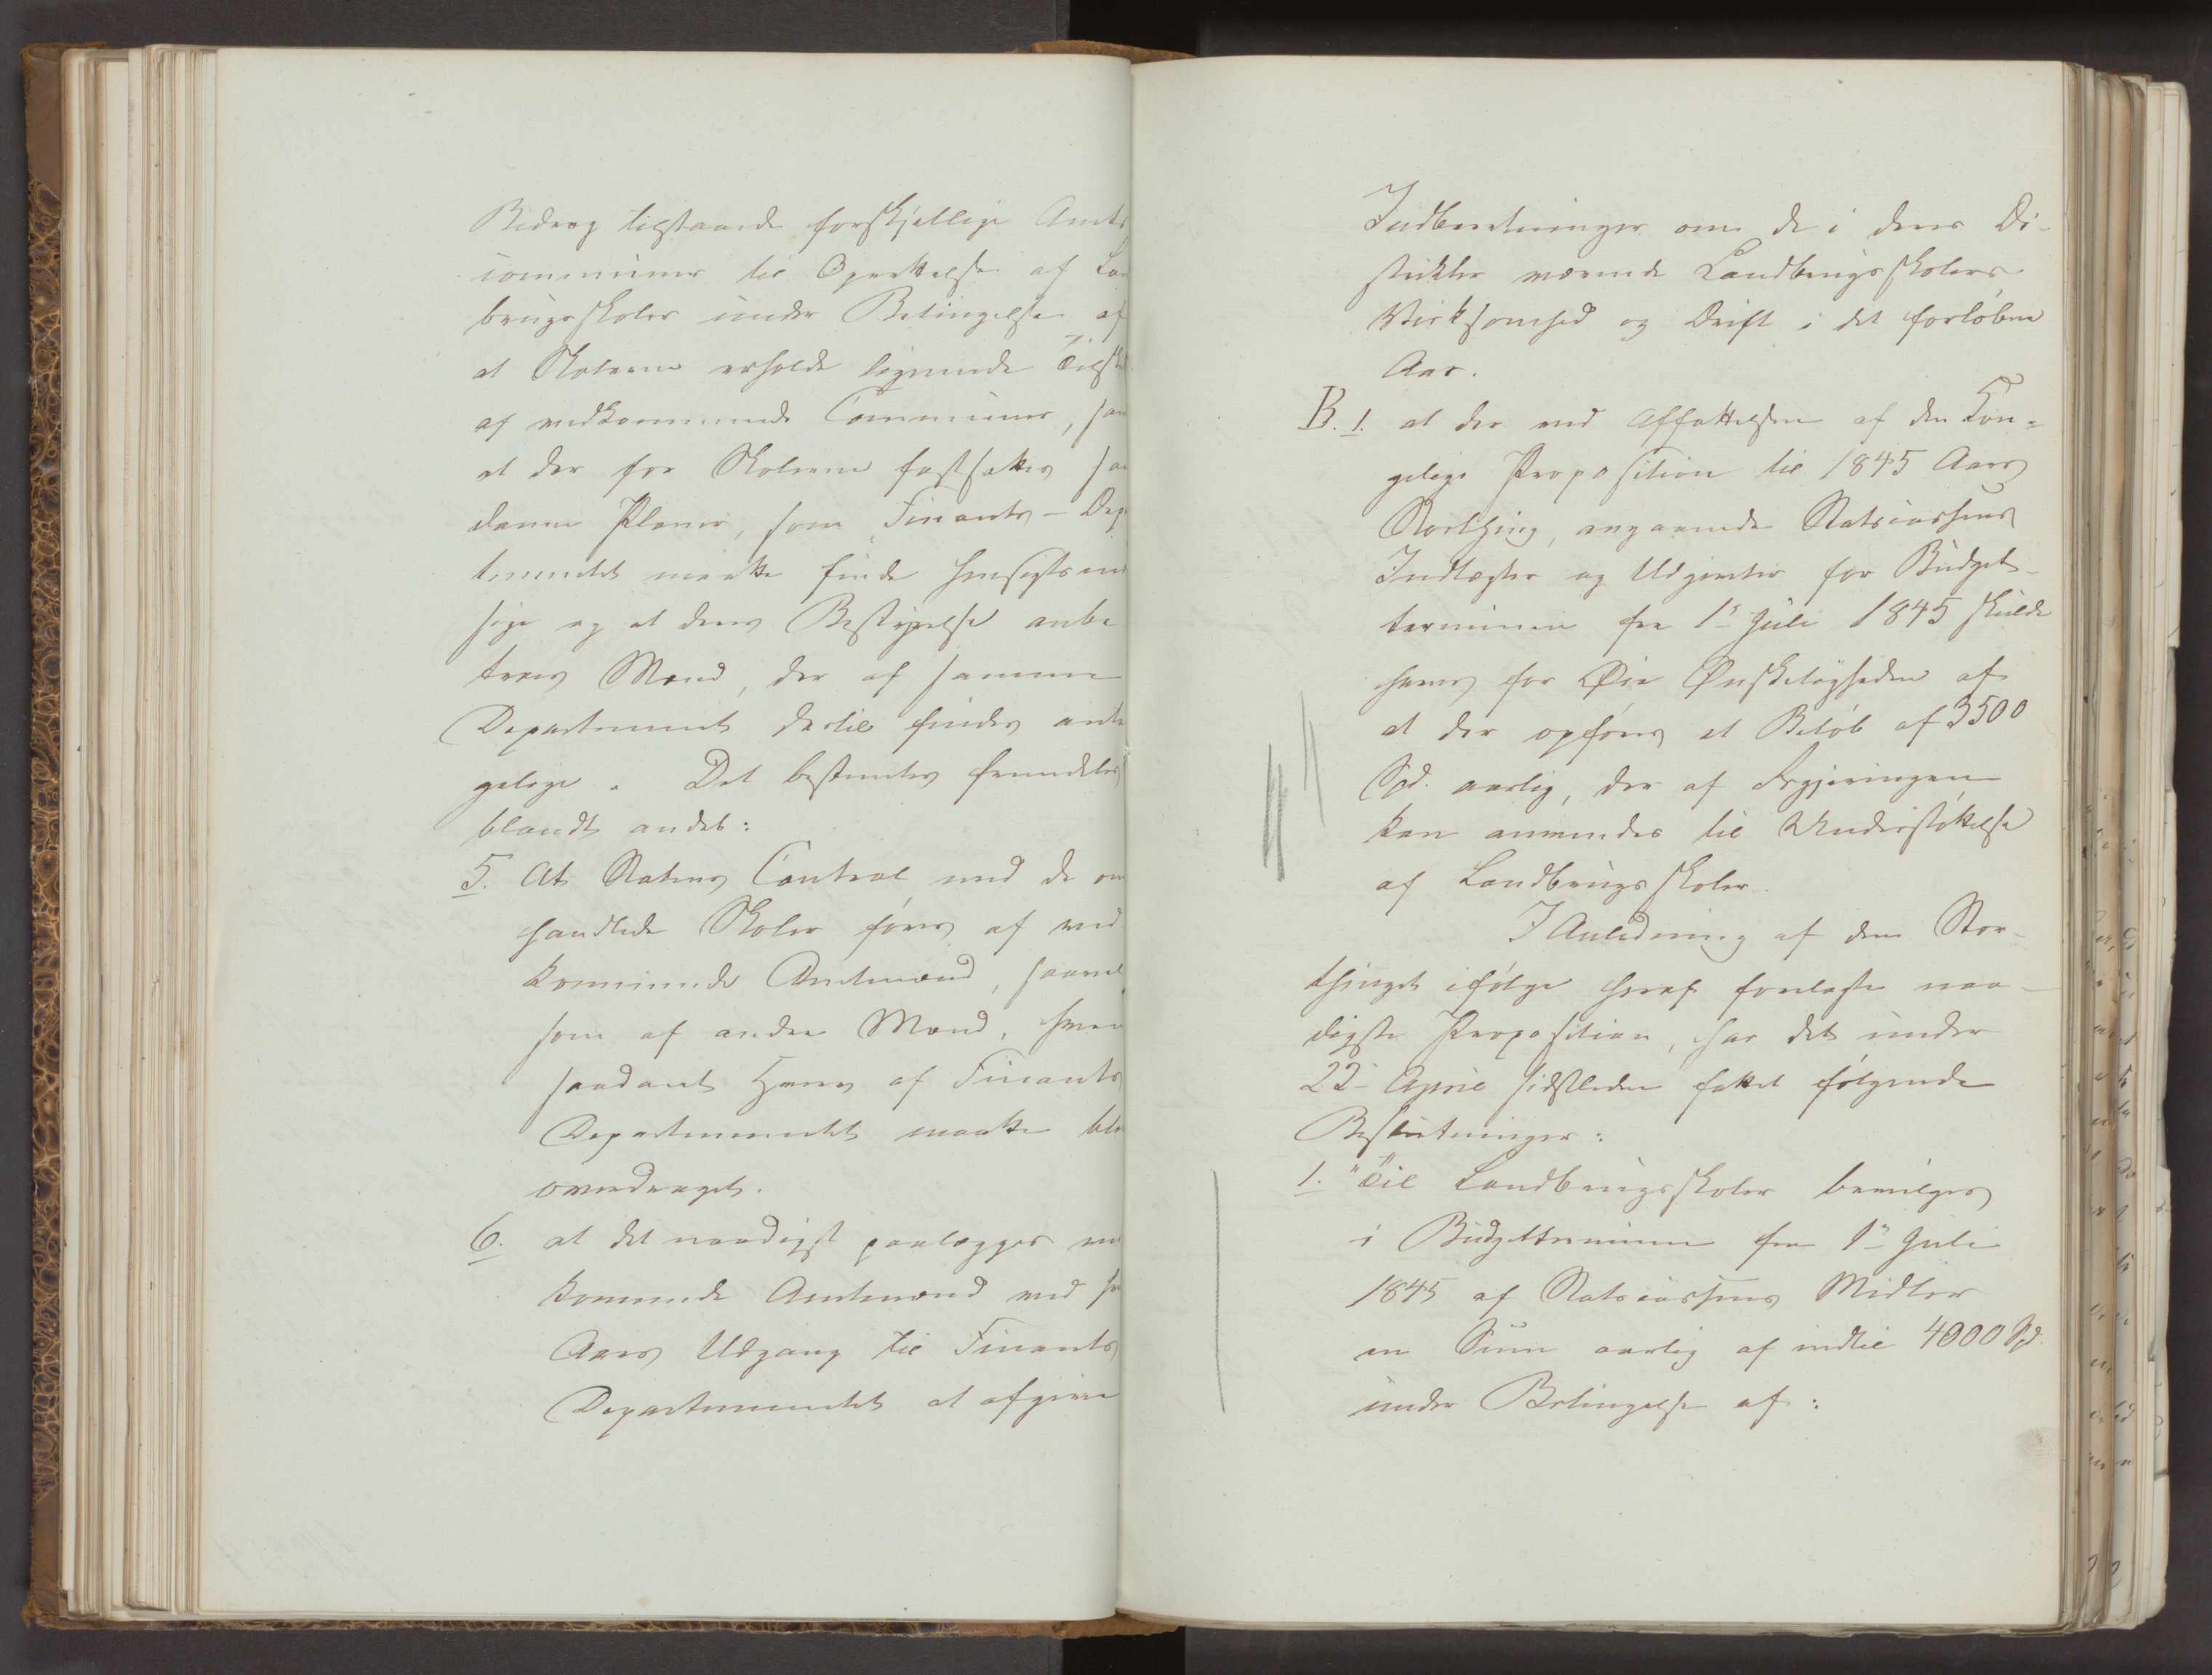 Bidrag tilstaaede forskjellige Amts
communer til Oprettelse af Lan
brugsskoler under Betingelse af
at Skolerne erholde lignende Tilsk
af vedkommende Communer, sam
at der for Skolerne fastsættes saa
danne Planer, som Finants-Dep
tementet maatte finde hensigtsmæ
sige og at deres Bestyrelse anbe
troes Mænd, der af samme
Departement dertil findes anta
gelige. Det bestemtes fremdeles
blandt andet:
5. At Statens Control med de om
handlede Skoler føres af ved
kommende Amtmænd, saavel
som af andre Mænd, hvem
saadant Hverv af Finants
Departementet maatte bliv
overdraget.
6. at det naadigst paalægges ved
kommende Amtmænd ved hv
Aars Udgang til Finants
Departementet at afgive
Indberetninger om de i deres Di-
strikter værende Landbrugsskolers
Virksomhed og Drift i det forløbne
Aar.
B. 1. at der ved Affattelsen af den Kon-
gelige Proposition til 1845 Aars
Storthing, angaaende Statscassens
Indtægter og Udgivter for Budget-
terminen fra 1ste Juli 1845 skulde
haves for Øie Ønskeligheden af
at der opføres et Beløb af 3500
Spd. aarlig, der af Regjeringen
kan anvendes til Understøttelse
af Landbrugsskoler.
I Anledning af den Stor-
thinget ifølge heraf forelagte naa-
digste Proposition, har det under
22de April sidstleden fattet følgende
Beslutninger:
1. "Til Landbrugsskoler bevilges
i Budgetterminen fra 1ste Juli
1845 af Statscassens Midler
en Sum aarlig af indtil 4000 Spd.
under Betingelse af: